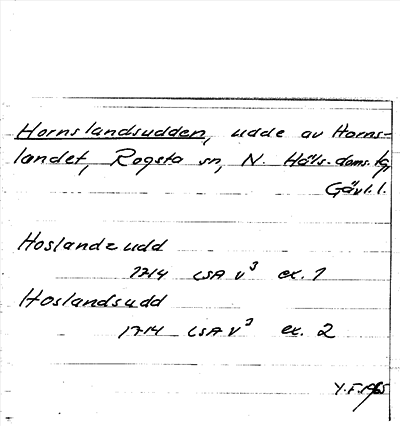 Hornslandsudden, udde av Horns-
landet, Rogsta sn, N. Häls. doms. tg,
Gävl. l.
Hoslandzudd
1714 LSA V³ ex. 1
Hoslandsudd
1714 LSA V³ ex. 2
Y.F. 1965